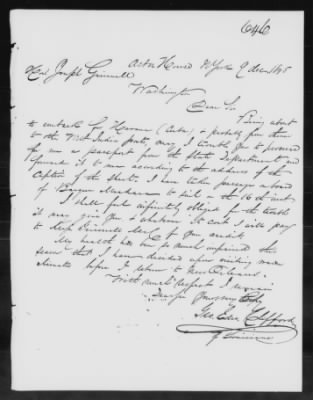 646
Astor House N York 9 Decr 1845
Hon Joseph Grinnell
Washington
Dear Sir
Being about
to embark to Havana (Cuba) & probably from thence
to the West India ports, may I trouble you to procure
for me a passport from the State Department and
forward it to me according to the address at the
Caption of the Sheet. I have taken passage aboard
of to sail on the 16th inst
I shall feel infinitely obliged for the trouble
it may give you & whatever it cost I will pay
to Messrs Grinnell of your credit
My health has been so much impaired this
season that I have decided upon visiting
climate before I return to New Orleans.
With much respect I remain
Geo. Edw. Clifford
of Louisiana